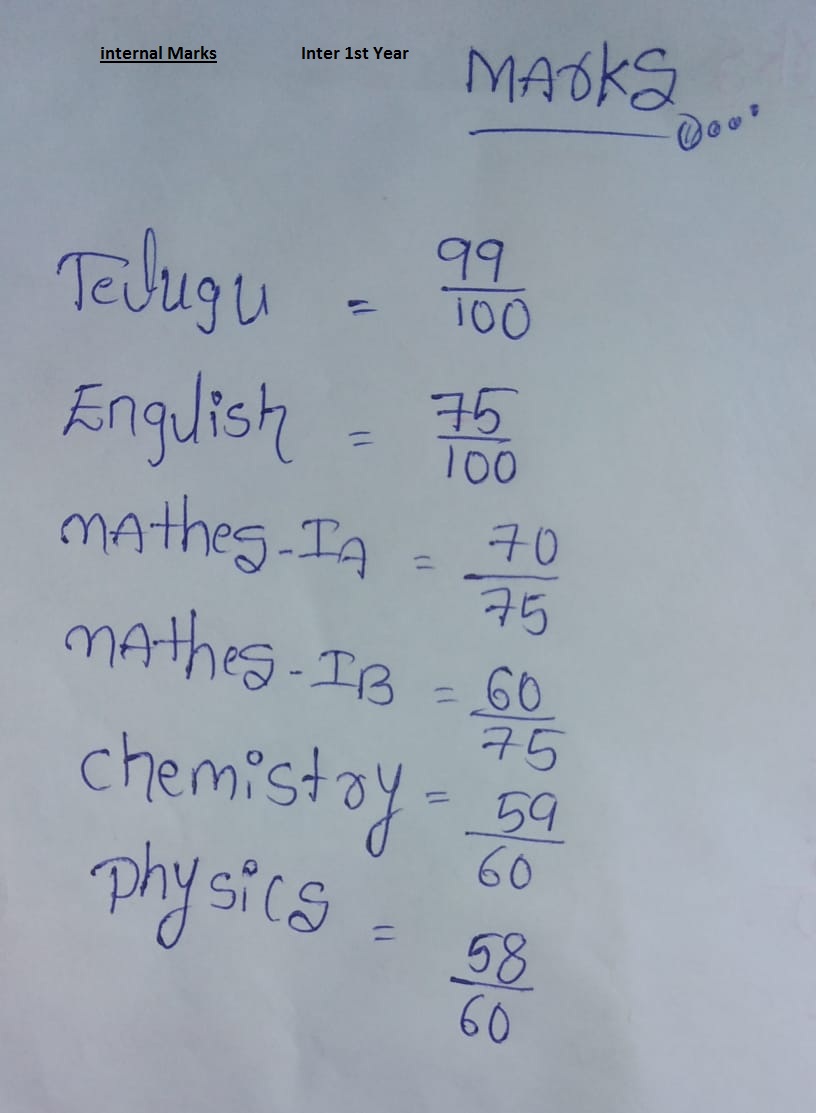 internal Marks Inter 1st Year
MArkS
Telugu = 99/100
English = 75/100
mAthes-IA = 70/75
mAthes-IB = 60/75
chemistry = 59/60
physics = 58/60